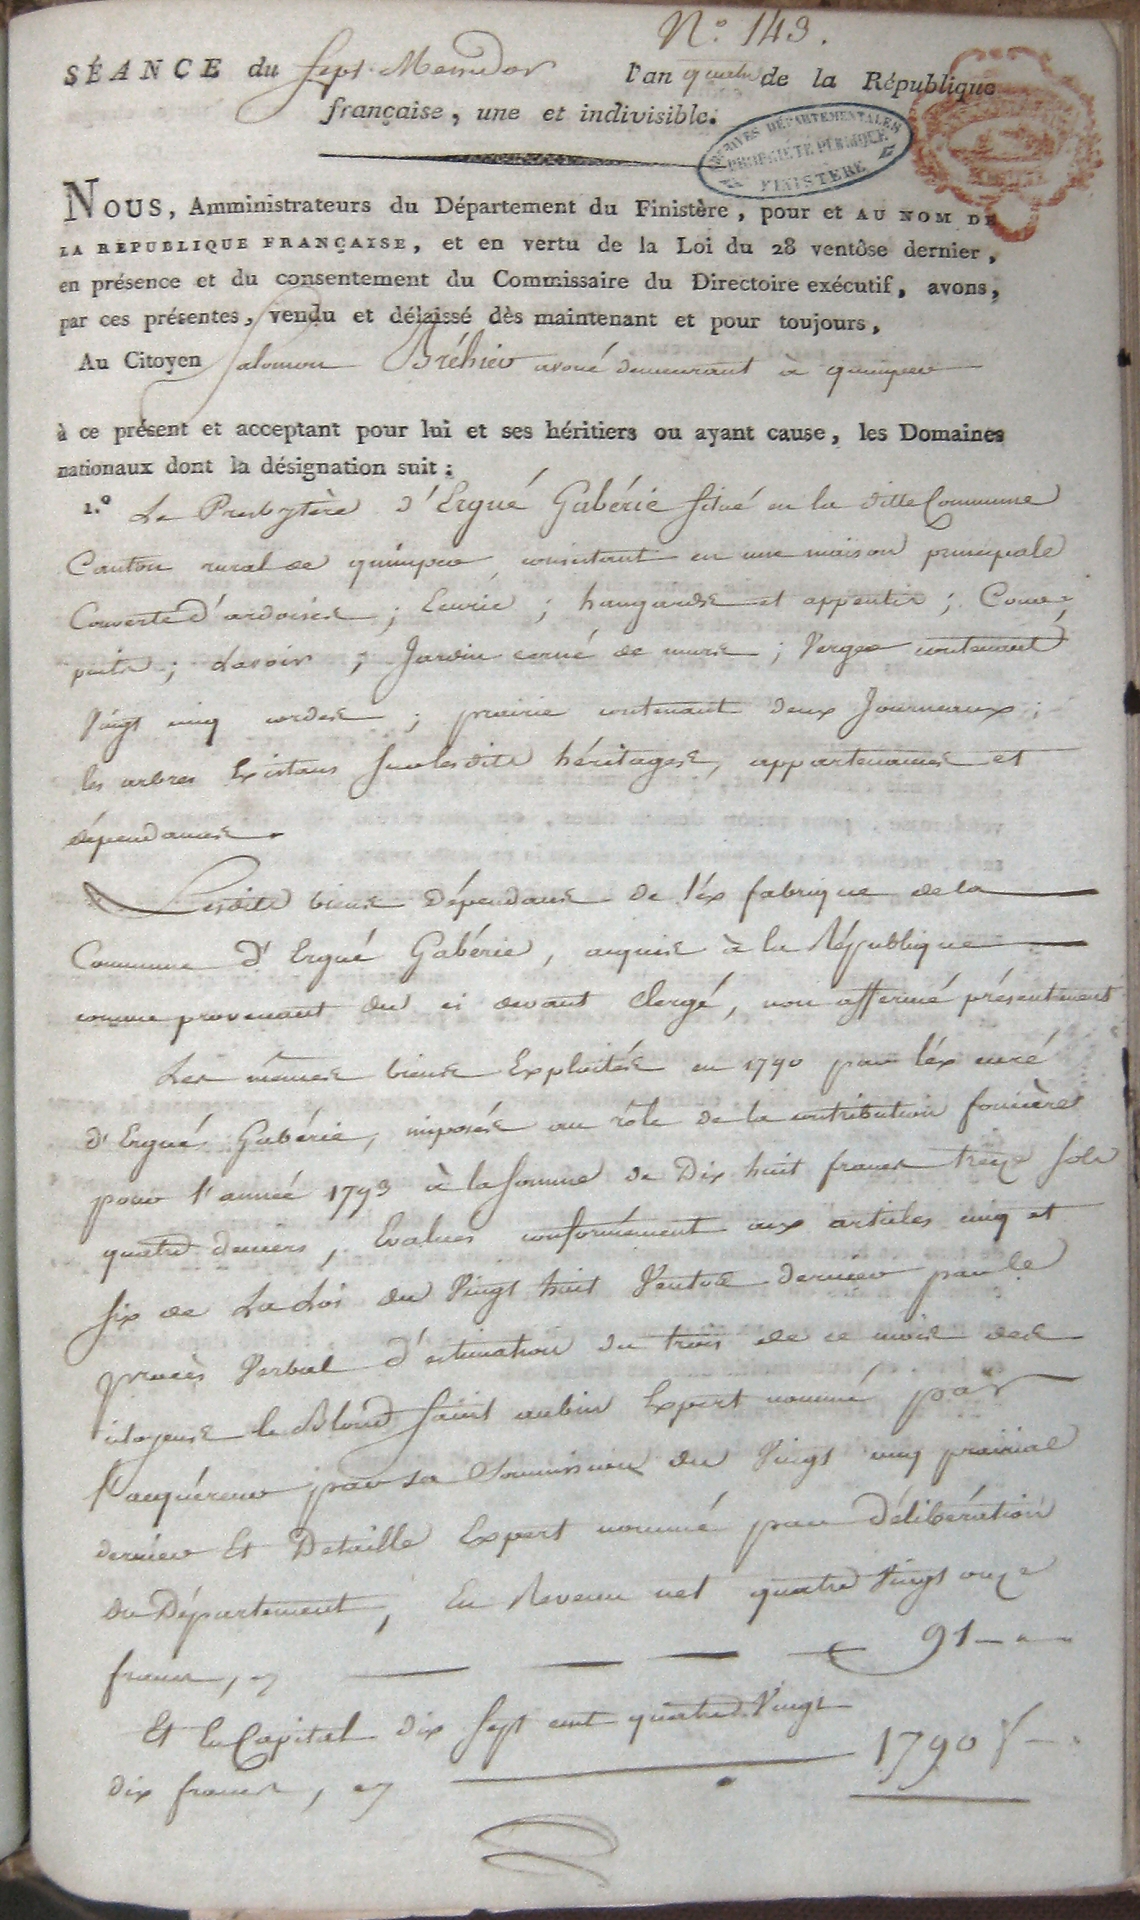 N.° 143.
SÉANCE du Sept Messidor l'an quatre de la République
française, une et indivisible.
ARCHIVES DÉPARTEMENTALES
PROPRIÉTÉ PUBLIQUE
FINISTÈRE
NOUS, Amministrateurs du Département du Finistère, pour et AU NOM DE
LA RÉPUBLIQUE FRANÇAISE, et en vertu de la Loi du 28 ventôse dernier,
en présence et du consentement du Commissaire du Directoire exécutif, avons,
par ces présentes, vendu et délaissé dès maintenant et pour toujours,
Au Citoyen Salomon Bréhier avoué demeurant à quimper
à ce présent et acceptant pour lui et ses héritiers ou ayant cause, les Domaines
nationaux dont la désignation suit :
1.° Le Presbytère d'Ergué Gabérie situé en la ditte Commune
Canton rural de quimper, consistant en une maison principale
Couverte d'ardoises ; Ecurie ; hangards et appentis ; Cour ;
puits ; Lavoir ; Jardin cerné de murs ; Verger contenant
Vingt cinq cordes ; prairie contenant deux Journeaux ;
les arbres Existans sur lesdits héritages, appartenances et
dépendances.
Lesdits biens dépendans de l'éx fabrique de la
Commune d'Ergué Gabérie, acquis à la République
comme provenant du ci devant Clergé, non affermé présentement
Les mêmes biens Exploités en 1790 par l'éx curé
d'Ergué Gabérie, imposés au rôle de la contribution foncière
pour l'année 1793 à la somme de Dix huit francs treize sols
quatre deniers, Evalués conformément aux articles cinq et
six de La Loi du Vingt huit Ventose dernier par le
procès Verbal d'estimation du trois de ce mois des
citoyens le Blond Saint aubin Expert nommé par
l'acquéreur par sa Soumission du Vingt cinq prairial
dernier Et Detaille Expert nommé par délibération
du Département, En Revenu net quatre Vingt onze
francs, cy 91
Et En Capital dix sept cent quatre Vingt
dix francs, cy 1790